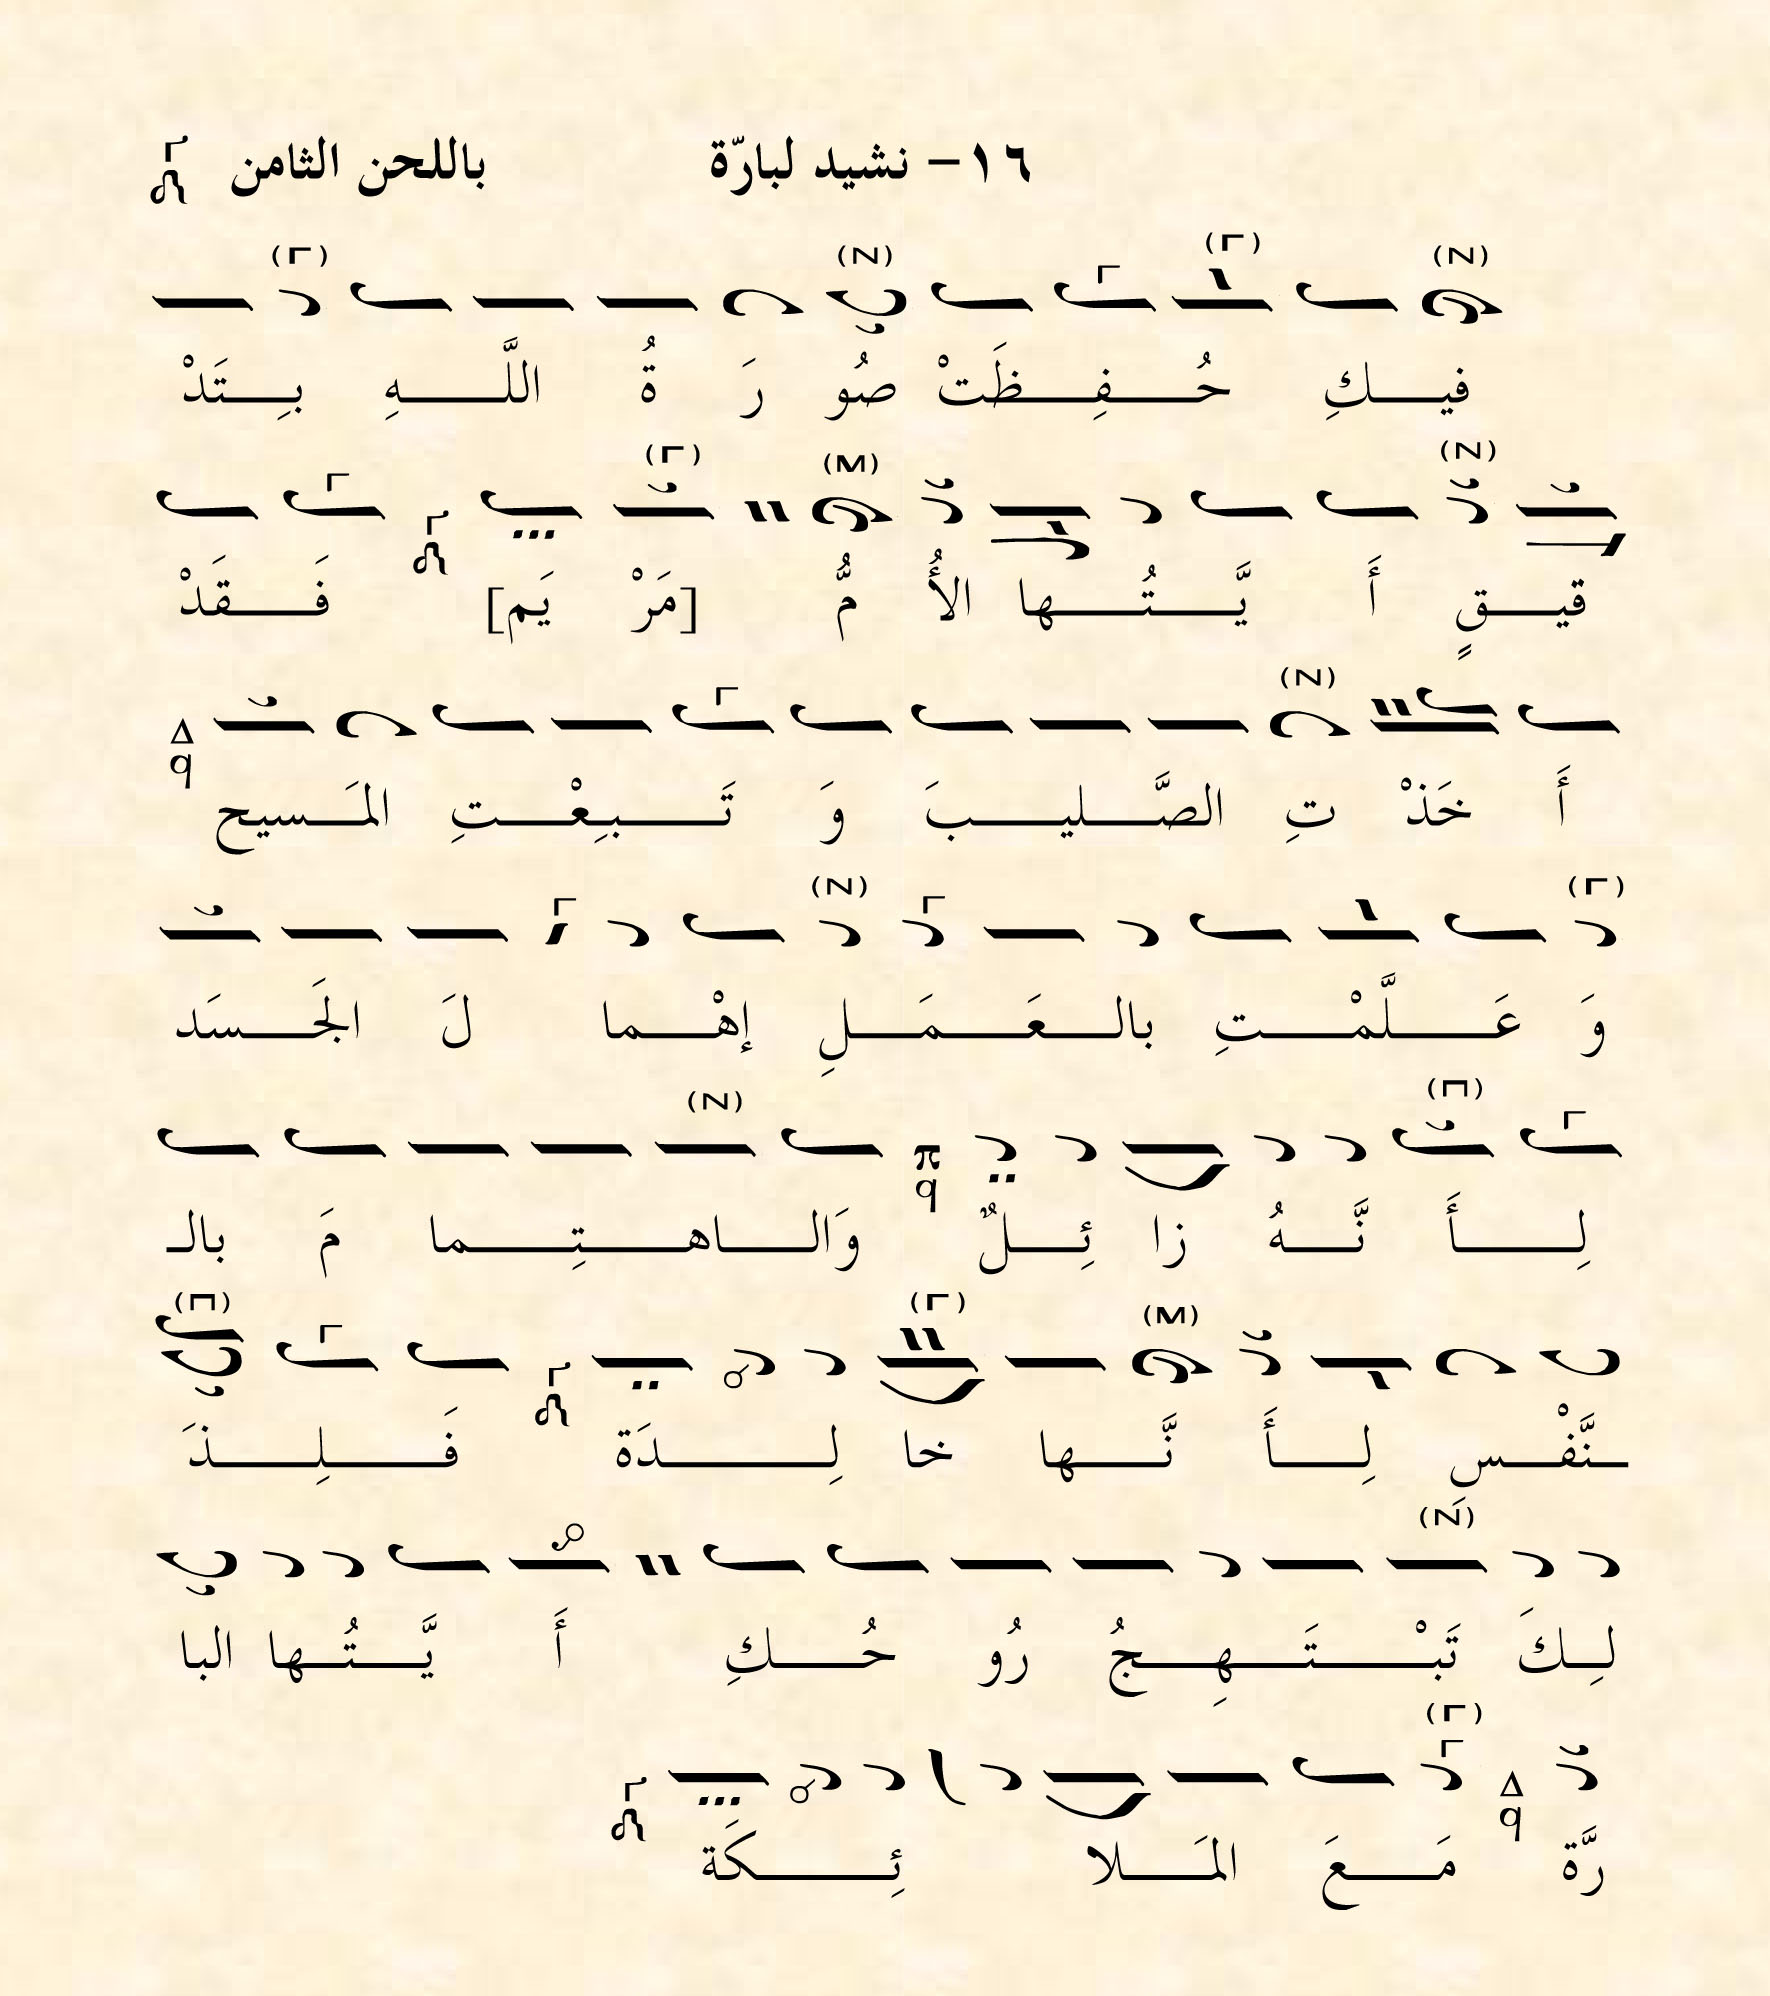 ١٦- نشيد لبارّة باللحن الثامن
فيـــكِ حُـــفِـــظَتْ صُو رَ ةُ اللَّـــهِ بِـــتَدْ
قيـــقٍ أَ يَّـــتُـــها الأُ مُّ [مَرْ يَم] فَـــقَدْ
أَ خَذْ تِ الصَّـــليـــبَ وَ تَـــبِعْـــتِ المَـــسيح
وَ عَـــلَّمْـــتِ بالـــعَـــمَـــلِ إهْـــما لَ الجَـــسَد
لِـــأَ نَّـــهُ زا ئِـــلٌ وَالـــاهـــتِـــما مَ بالـ
ـنَّفْـــس لِـــأَ نَّـــها خا لِـــدَة فَـــلِـــذَ
لِـــكَ تَبْـــتَـــهِـــجُ رُو حُـــكِ أَ يَّـــتُـــها البا
رَّة مَـــعَ المَـــلا ئِـــكَة